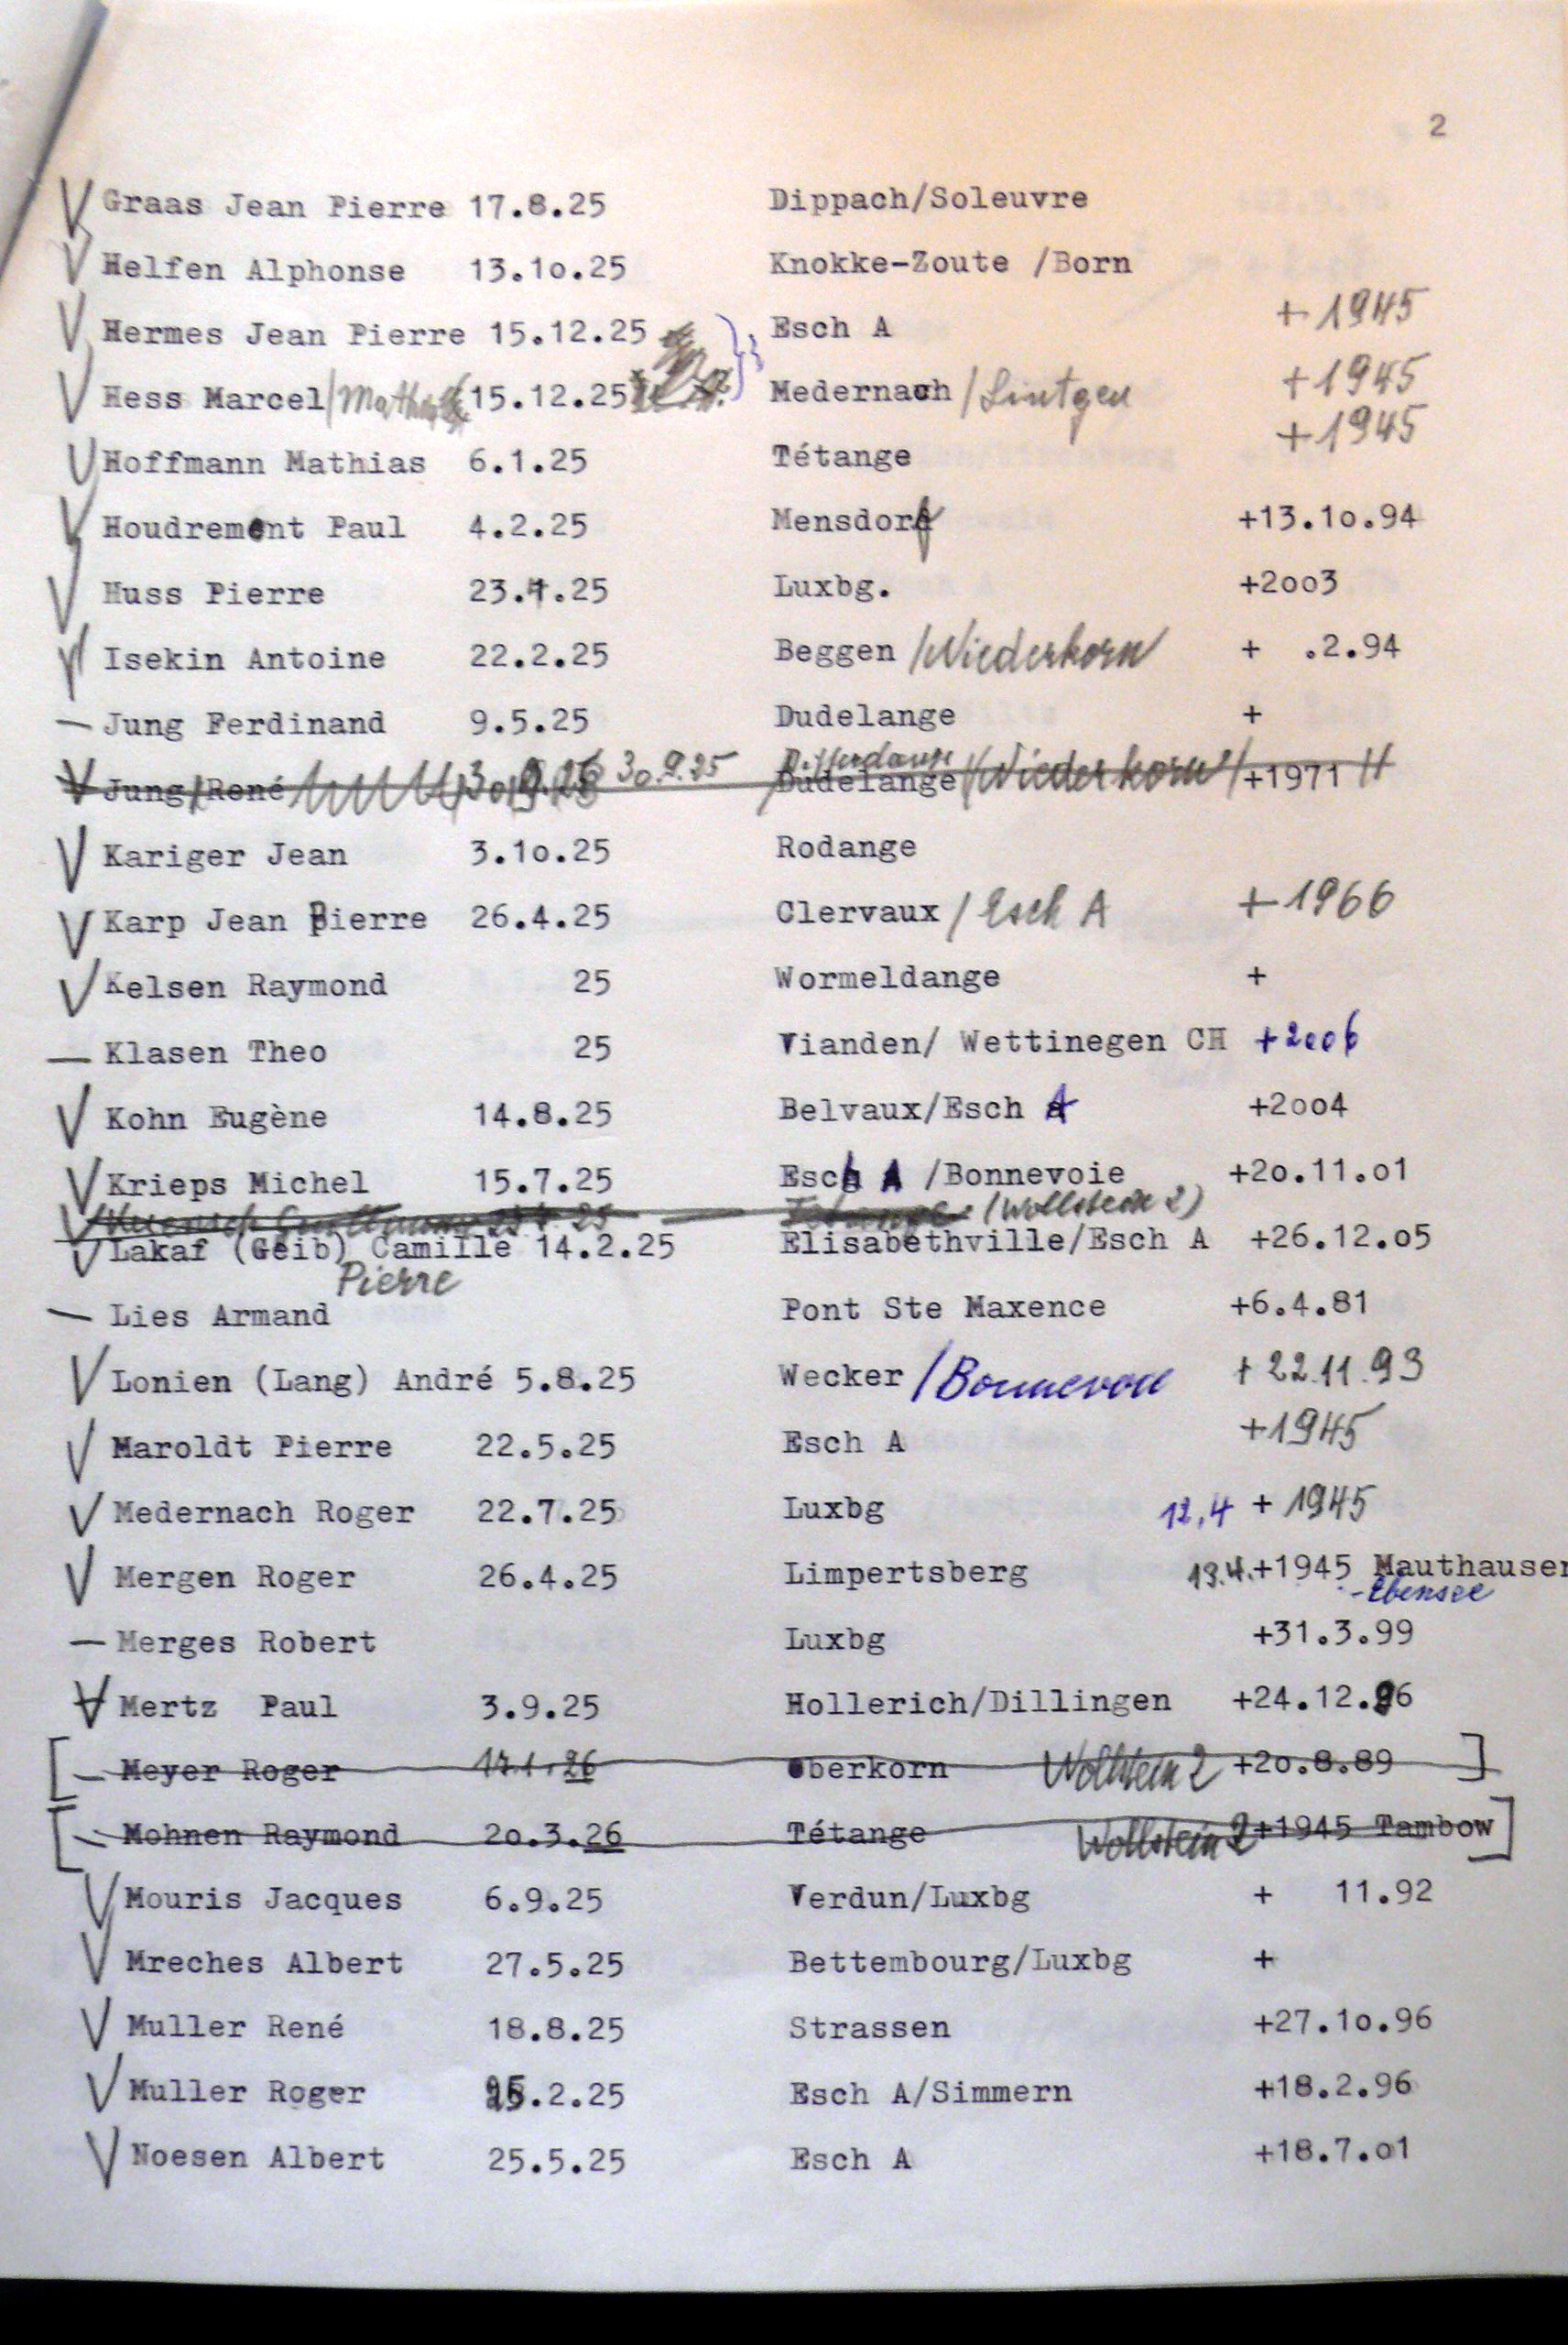 2
Graas Jean Pierre 17.8.25 Dippach/Soleuvre
Helfen Alphonse 13.10.25 Knokke-Zoute /Born
Hermes Jean Pierre 15.12.25 Esch A + 1945
Hess Marcel/ 15.12.25 Medernach /Lintgen +1945
Hoffmann Mathias 6.1.25 Tétange +1945
Houdremont Paul 4.2.25 Mensdorf +13.10.94
Huss Pierre 23.4.25 Luxbg. +2003
Isekin Antoine 22.2.25 Beggen /Niederkorn + .2.94
— Jung Ferdinand 9.5.25 Dudelange +
Jung René 30.9.25 Differdange Dudelange /Niederkorn +1971
Kariger Jean 3.10.25 Rodange
Karp Jean Pierre 26.4.25 Clervaux /Esch A +1966
Kelsen Raymond 25 Wormeldange +
— Klasen Theo 25 Vianden/ Wettinegen CH +2006
Kohn Eugène 14.8.25 Belvaux/Esch A +2004
Krieps Michel 15.7.25 Esch A /Bonnevoie +20.11.01
25 Tétange (Wollstein 2)
Lakaf (Geib) Camille 14.2.25 Elisabethville/Esch A +26.12.05
Pierre
— Lies Armand Pont Ste Maxence +6.4.81
Lonien (Lang) André 5.8.25 Wecker /Bonnevoie + 22.11.93
Maroldt Pierre 22.5.25 Esch A +1945
Medernach Roger 22.7.25 Luxbg 12,4 + 1945
Mergen Roger 26.4.25 Limpertsberg 13.4.+1945 Mauthausen
-Ebensee
— Merges Robert Luxbg +31.3.99
Mertz Paul 3.9.25 Hollerich/Dillingen +24.12.96
[— Meyer Roger 17.1.26 Oberkorn Wollstein 2 +20.8.89 ]
[— Mohnen Raymond 20.3.26 Tétange Wollstein 2 +1945 Tambow]
Mouris Jacques 6.9.25 Verdun/Luxbg + 11.92
Mreches Albert 27.5.25 Bettembourg/Luxbg +
Muller René 18.8.25 Strassen +27.10.96
Muller Roger .2.25 Esch A/Simmern +18.2.96
Noesen Albert 25.5.25 Esch A +18.7.01